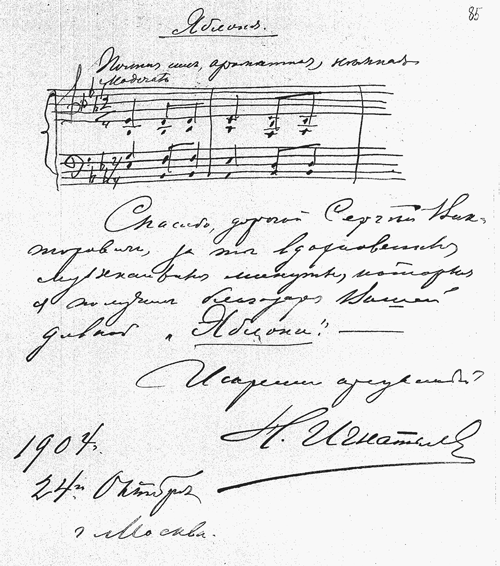 85
Яблоня.
Полная снег, ароматная, нежная
Moderato
Спасибо, дорогой Сергей Вик-
торович, за те вдохновенные
музыкальные минуты, которые
я получил благодаря Вашей
дивной „Яблони". —
Искренно преданный
Н. Игнатьев
1904 г.
24го Октября
г Москва.